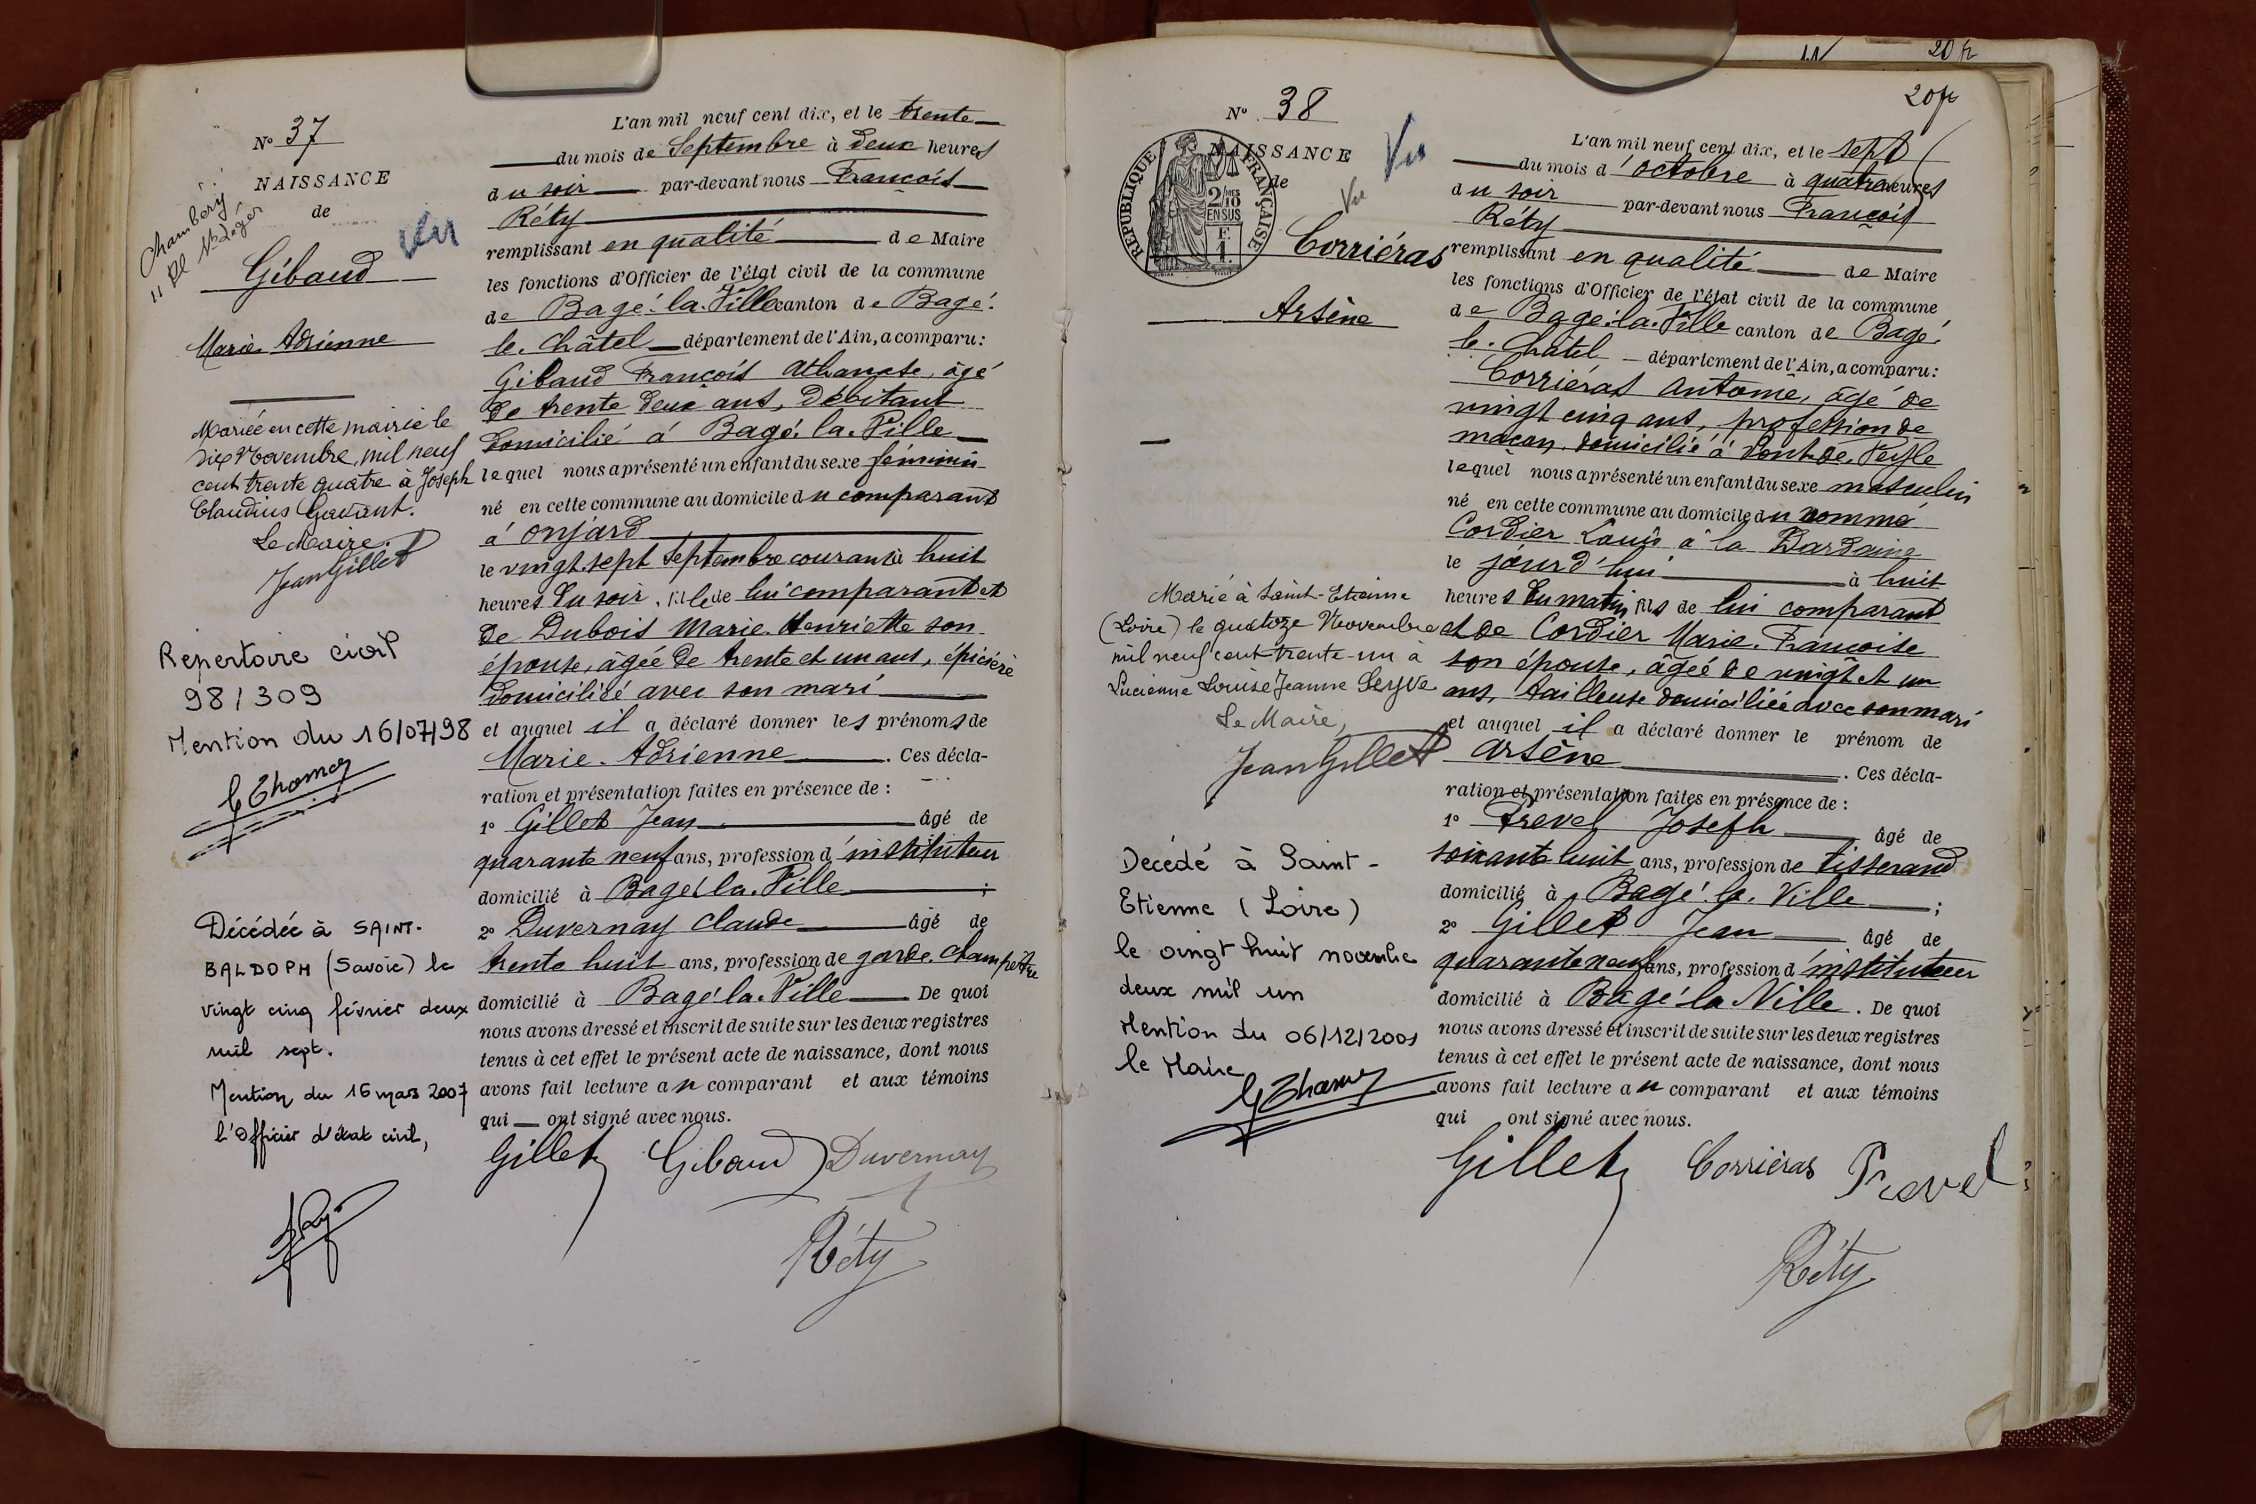 N° 37
NAISSANCE
de
Chambéry
11 Pl St Léger
Vu
Gibaud
Marie Adrienne
Mariée en cette mairie le
dix Novembre, mil neuf
cent trente quatre à Joseph
Claudius Gavant.
Le Maire.
Jean Gillet
Repertoire civil
98/309
Mention du 16/07/98
G Thomas
Décédée à SAINT-
BALDOPH (Savoie) le
vingt cinq février deux
mil sept.
Mention du 16 mars 2007
l'Officier d'état civil,
L'an mil neuf cent dix, et le trente
du mois de Septembre à deux heures
du soir par-devant nous François
Réty
remplissant en qualité de Maire
les fonctions d'Officier de l'état civil de la commune
de Bagé-la-Ville canton de Bagé-
le-Châtel département de l'Ain, a comparu:
Gibaud François Athanase, âgé
de trente deux ans, Débitant
domicilié à Bagé-la-Ville
lequel nous a présenté un enfant du sexe féminin
né en cette commune au domicile du comparant
à Onjard
le vingt-sept septembre courant à huit
heures du soir, fille de lui comparant et
de Dubois Marie-Henriette son
épouse, âgée de trente et un ans, épicière
domiciliée avec son mari
et auquel il a déclaré donner les prénoms de
Marie-Adrienne. Ces décla-
ration et présentation faites en présence de :
1° Gillet Jean âgé de
quarante neuf ans, profession d'instituteur
domicilié à Bagé-la-Ville ;
2° Duvernay Claude âgé de
trente huit ans, profession de garde-champêtre
domicilié à Bagé-la-Ville De quoi
nous avons dressé et inscrit de suite sur les deux registres
tenus à cet effet le présent acte de naissance, dont nous
avons fait lecture au comparant et aux témoins
qui ont signé avec nous.
Gillet Gibaud Duvernay
Réty
20 fr
20 fr
N° 38
NAISSANCE
de
REPUBLIQUE FRANÇAISE
2/10 MES
EN SUS
F.
1.
Vu
Vu
Corriéras
Arsène
Marié à Saint-Etienne
(Loire) le quatorze Novembre
mil neuf cent trente-un à
Lucienne Louise Jeanne Seyve
Le Maire,
Jean Gillet
Decédé à Saint-
Etienne (Loire)
le vingt huit novembre
deux mil un
Mention du 06/12/2001
le Maire
G Thomas
L'an mil neuf cent dix, et le sept
du mois d'octobre à quatre heures
du soir par-devant nous François
Réty
remplissant en qualité de Maire
les fonctions d'Officier de l'état civil de la commune
de Bagé-la-Ville canton de Bagé-
le-Châtel département de l'Ain, a comparu:
Corriéras Antoine, âgé de
vingt cinq ans, profession de
maçon, domicilié à Pont-de-Veyle
lequel nous a présenté un enfant du sexe masculin
né en cette commune au domicile du nommé
Cordier Louis à la Dardaine
le jourd'hui à huit
heures du matin fils de lui comparant
et de Cordier Marie-Françoise
son épouse, âgée de vingt et un
ans, tailleuse domiciliée avec son mari
et auquel il a déclaré donner le prénom de
Arsène. Ces décla-
ration et présentation faites en présence de :
1° Prevel Joseph âgé de
soixante huit ans, profession de tisserand
domicilié à Bagé-la-Ville ;
2° Gillet Jean âgé de
quarante neuf ans, profession d'instituteur
domicilié à Bagé-la-Ville. De quoi
nous avons dressé et inscrit de suite sur les deux registres
tenus à cet effet le présent acte de naissance, dont nous
avons fait lecture au comparant et aux témoins
qui ont signé avec nous.
Gillet Corriéras Prevel
Réty